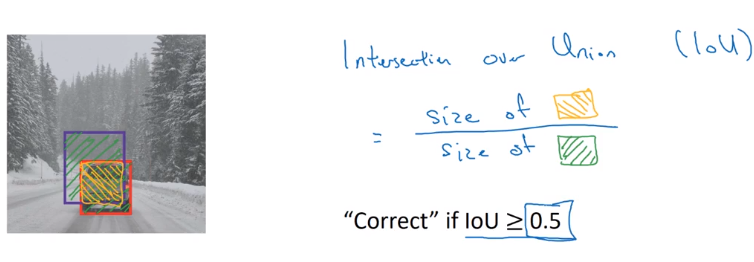 Intersection over Union (IoU)
size of
=
size of
"Correct" if IoU ≥ 0.5